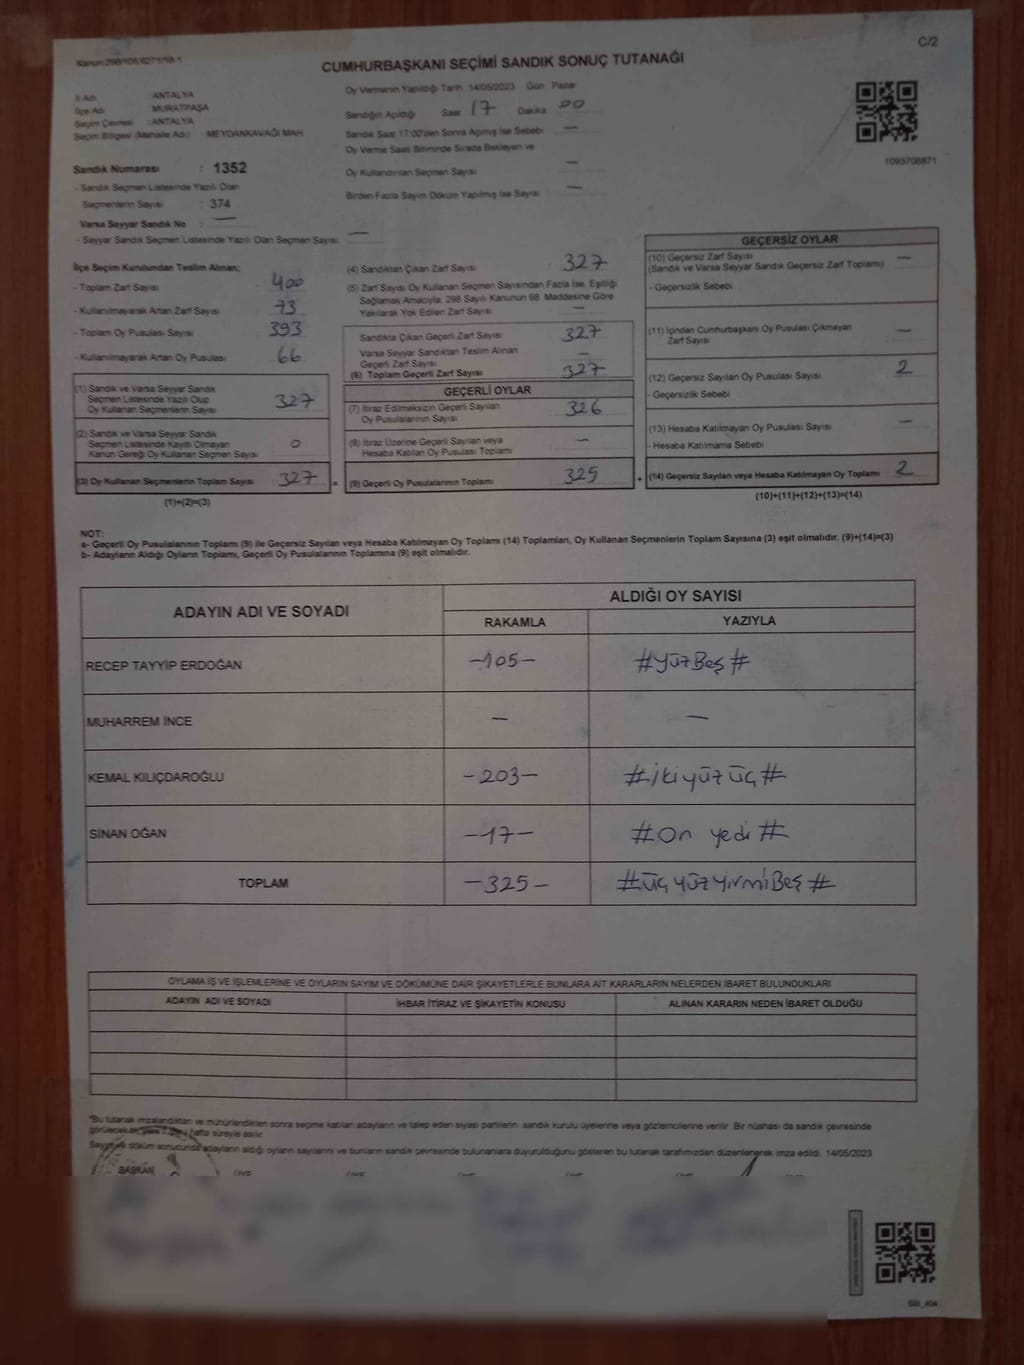 C/2
Kanun:298/105,6271/18-1
CUMHURBAŞKANI SEÇİMİ SANDIK SONUÇ TUTANAĞI
İl Adı : ANTALYA
İlçe Adı : MURATPAŞA
Seçim Çevresi : ANTALYA
Seçim Bölgesi (Mahalle Adı) : MEYDANKAVAĞI MAH
Sandık Numarası : 1352
- Sandık Seçmen Listesinde Yazılı Olan
Seçmenlerin Sayısı : 374
Varsa Seyyar Sandık No : —
- Seyyar Sandık Seçmen Listesinde Yazılı Olan Seçmen Sayısı: —
Oy Vermenin Yapıldığı Tarih :14/05/2023 Gün : Pazar
Sandığın Açıldığı Saat 17 Dakika 00
Sandık Saat 17:00'den Sonra Açılmış İse Sebebi : —
Oy Verme Saati Bitiminde Sırada Bekleyen ve
Oy Kullandırılan Seçmen Sayısı : —
Birden Fazla Sayım Döküm Yapılmış İse Sayısı : —
1093706871
İlçe Seçim Kurulundan Teslim Alınan;
- Toplam Zarf Sayısı : 400
- Kullanılmayarak Artan Zarf Sayısı : 73
- Toplam Oy Pusulası Sayısı : 393
- Kullanılmayarak Artan Oy Pusulası : 66
(1) Sandık ve Varsa Seyyar Sandık
Seçmen Listesinde Yazılı Olup
Oy Kullanan Seçmenlerin Sayısı : 327
(2) Sandık ve Varsa Seyyar Sandık
Seçmen Listesinde Kayıtlı Olmayan
Kanun Gereği Oy Kullanan Seçmen Sayısı : 0
(3) Oy Kullanan Seçmenlerin Toplam Sayısı : 327 =
(1)+(2)=(3)
(4) Sandıktan Çıkan Zarf Sayısı : 327
(5) Zarf Sayısı Oy Kullanan Seçmen Sayısından Fazla İse, Eşitliği
Sağlamak Amacıyla, 298 Sayılı Kanunun 98. Maddesine Göre
Yakılarak Yok Edilen Zarf Sayısı : —
Sandıkta Çıkan Geçerli Zarf Sayısı : 327
Varsa Seyyar Sandıktan Teslim Alınan
Geçerli Zarf Sayısı : —
(6) Toplam Geçerli Zarf Sayısı : 327
GEÇERLİ OYLAR
(7) İtiraz Edilmeksizin Geçerli Sayılan
Oy Pusulalarının Sayısı : 326
(8) İtiraz Üzerine Geçerli Sayılan veya
Hesaba Katılan Oy Pusulası Toplamı : —
(9) Geçerli Oy Pusulalarının Toplamı : 325 +
GEÇERSİZ OYLAR
(10) Geçersiz Zarf Sayısı : —
(Sandık ve Varsa Seyyar Sandık Geçersiz Zarf Toplamı)
- Geçersizlik Sebebi :
(11) İçinden Cumhurbaşkanı Oy Pusulası Çıkmayan
Zarf Sayısı : —
(12) Geçersiz Sayılan Oy Pusulası Sayısı : 2
- Geçersizlik Sebebi :
(13) Hesaba Katılmayan Oy Pusulası Sayısı : —
- Hesaba Katılmama Sebebi :
(14) Geçersiz Sayılan veya Hesaba Katılmayan Oy Toplamı : 2
(10)+(11)+(12)+(13)=(14)
NOT:
a- Geçerli Oy Pusulalarının Toplamı (9) ile Geçersiz Sayılan veya Hesaba Katılmayan Oy Toplamı (14) Toplamları, Oy Kullanan Seçmenlerin Toplam Sayısına (3) eşit olmalıdır. (9)+(14)=(3)
b- Adayların Aldığı Oyların Toplamı, Geçerli Oy Pusulalarının Toplamına (9) eşit olmalıdır.
ADAYIN ADI VE SOYADI
ALDIĞI OY SAYISI
RAKAMLA YAZIYLA
RECEP TAYYİP ERDOĞAN -105- #YüzBeş#
MUHARREM İNCE — —
KEMAL KILIÇDAROĞLU -203- #ikiyüzüç#
SİNAN OĞAN -17- #On yedi#
TOPLAM -325- #üçyüzyirmiBeş#
OYLAMA İŞ VE İŞLEMLERİNE VE OYLARIN SAYIM VE DÖKÜMÜNE DAİR ŞİKAYETLERLE BUNLARA AİT KARARLARIN NELERDEN İBARET BULUNDUKLARI
ADAYIN ADI VE SOYADI İHBAR İTİRAZ VE ŞİKAYETİN KONUSU ALINAN KARARIN NEDEN İBARET OLDUĞU
*Bu tutanak imzalandıktan ve mühürlendikten sonra seçime katılan adayların ve talep eden siyasi partilerin sandık kurulu üyelerine veya gözlemcilerine verilir. Bir nüshası da sandık çevresinde
görülecek bir yere 1 (bir) hafta süreyle asılır.
Sayım ve döküm sonucunda adayların aldığı oyların sayılarını ve bunların sandık çevresinde bulunanlara duyurulduğunu gösteren bu tutanak tarafımızdan düzenlenerek imza edildi. 14/05/2023
BAŞKAN